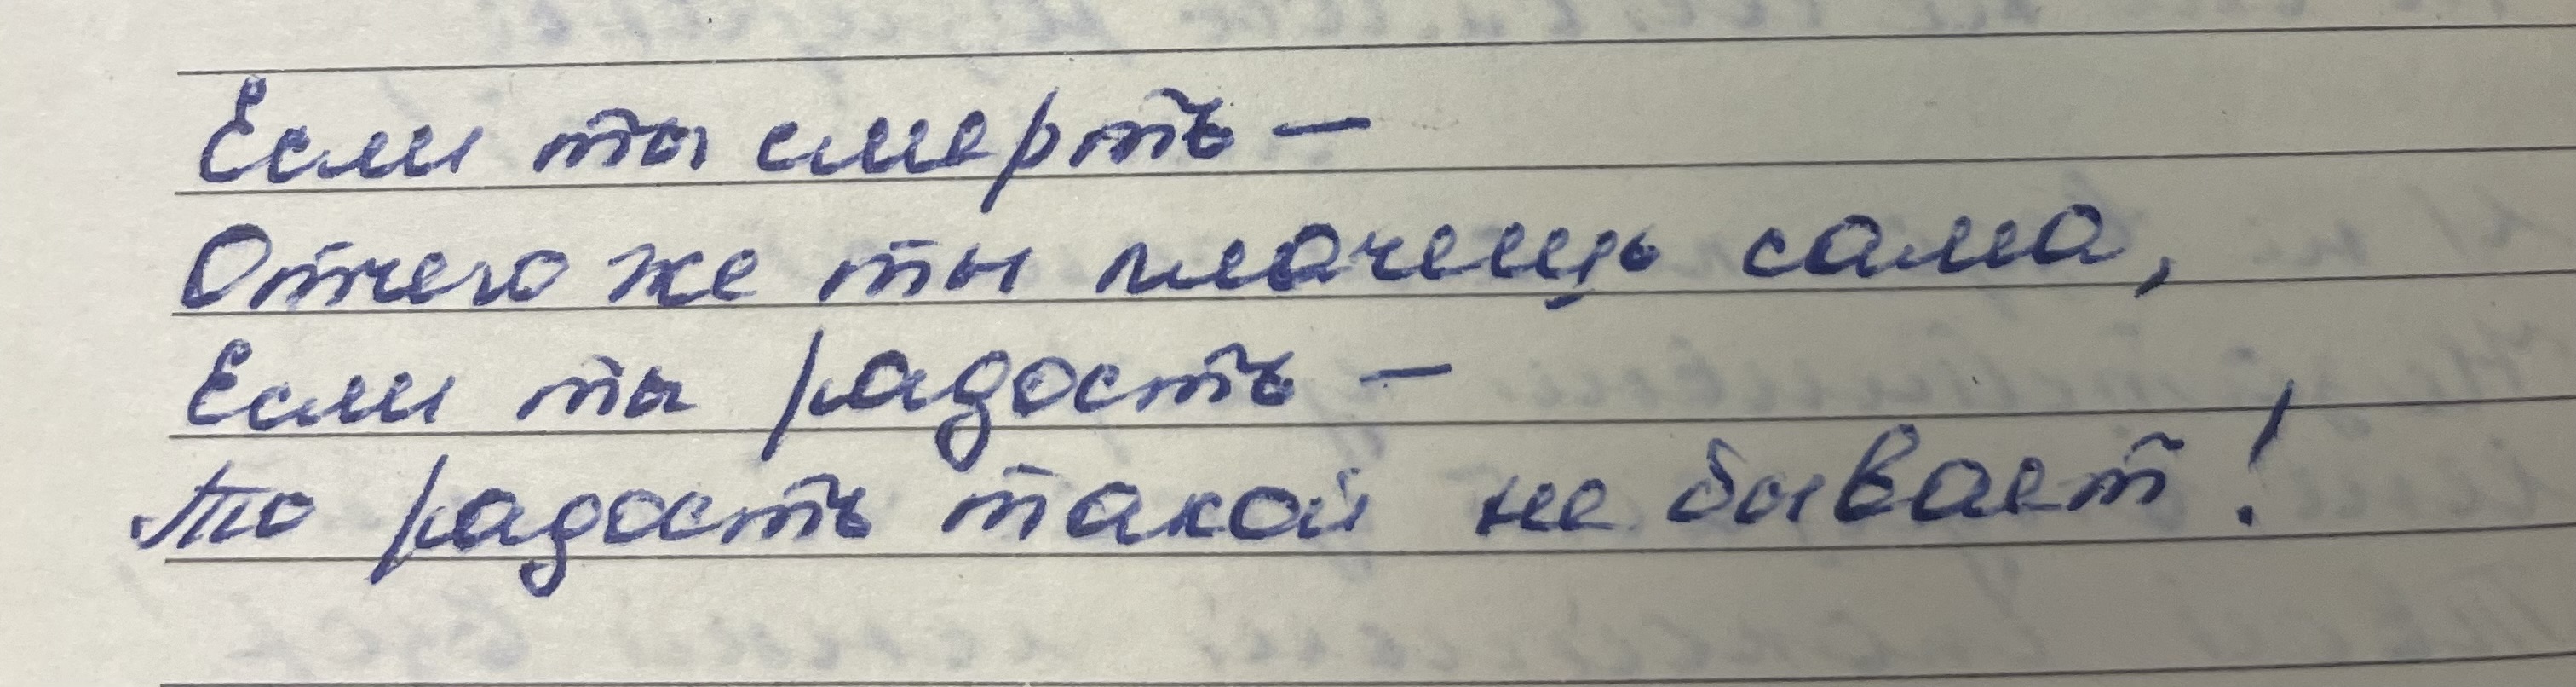 Если ты смерть —
Отчего же ты плачешь сама,
Если ты радость —
То радость такой не бывает!